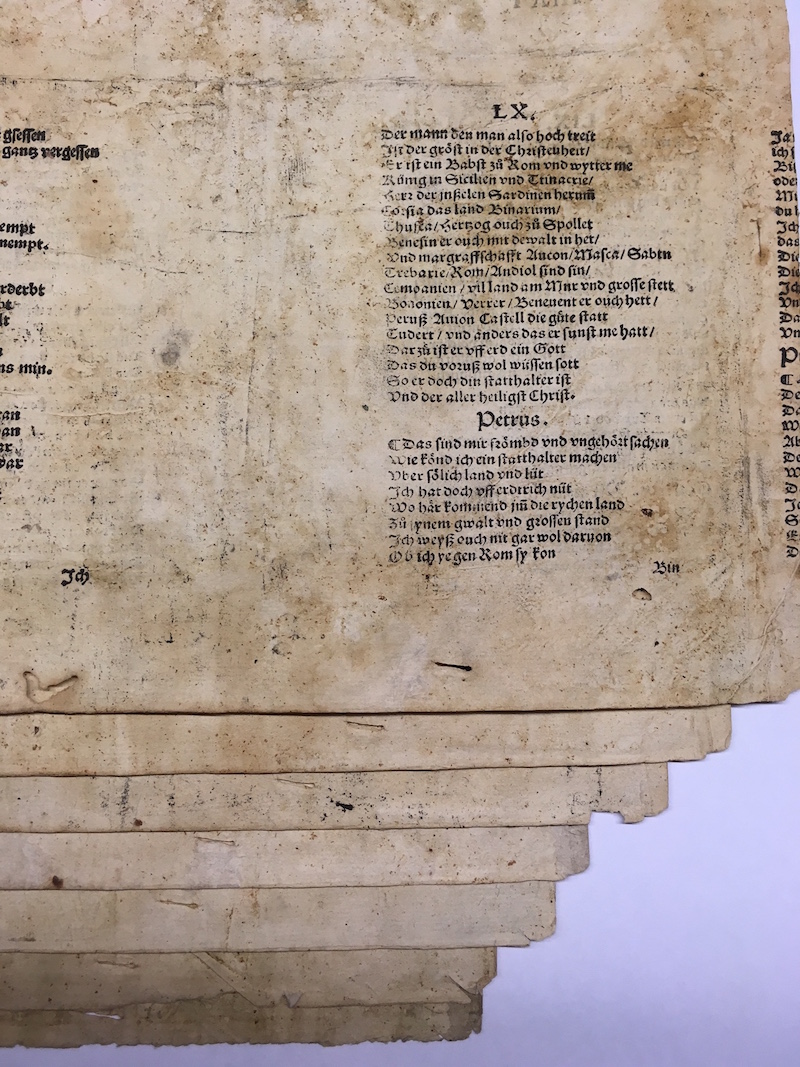 gsessen
gantz vergessen
empt
nempt.
rderbt
bt
lt
ns min.
an
an
ar
dar
Jch
LX.
Der mann den man also hoch treit
Jst der gröst in der Christenheit/
Er ist ein Babst zů Rom vnd wytter me
König in Sicilien vnd Trinacrie/
Herr der inßelen Sardinen herum̃
Corsia das land Binarium/
Thuska/Hertzog ouch zů Spollet
Venesin er ouch mit dewalt in het/
Vnd margraffschafft Ancon/Masca/Sabin
Trebarie/Rom/Andiol sind sin/
Companien/vil land am Mer vnd grosse stett
Bononien/Verrer/Beneuent er ouch hett/
Peruß Auion Castell die gůte statt
Tudert/vnd anders das er sunst me hatt/
Darzů ist er vff erd ein Gott
Das du voruß wol wüssen sott
So er doch din statthalter ist
Vnd der aller heiligst Christ.
Petrus.
¶ Das sind mir frömbd vnd vngehört sachen
Wie könd ich ein statthalter machen
Vber sölich land vnd lüt
Jch hat doch vff erdtrich nüt
Wo här kommend jm̃ die rychen land
Zů synem gwalt vnd grossen stand
Jch weyß ouch nit gar wol daruon
Ob ich ye gen Rom sy kon
Bin